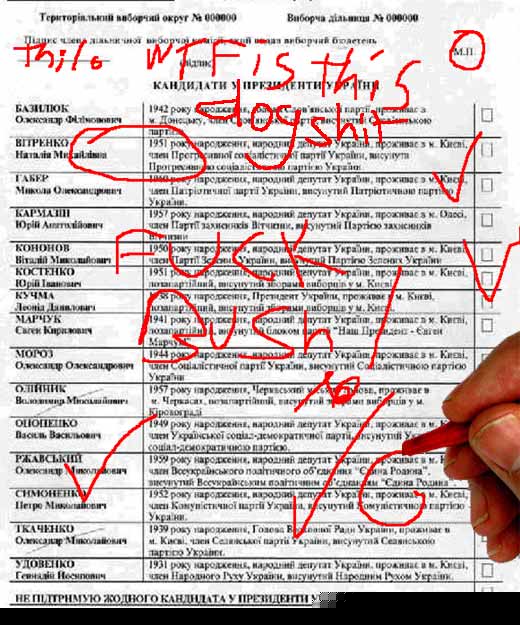 Територіальний виборчий округ № 000000 Виборча дільниця № 000000
Підпис члена дільничної виборчої комісії, який видав виборчий бюлетень
this WTF is this
підпис
М.П.
КАНДИДАТИ У ПРЕЗИДЕНТИ УКРАЇНИ
dog shit
БАЗИЛЮК
Олександр Філімонович
1942 року народження, партії, проживає в
м. Донецьку, член Слов'янської партії, висунутий Слов'янською
партією
ВІТРЕНКО
Наталія Михайлівна
1951 року народження, народний депутат України, проживає в м. Києві,
член Прогресивної соціалістичної партії України, висунута
Прогресивною соціалістичною партією України
ГАБЕР
Микола Олександрович
1960 року народження, народний депутат України, проживає в м. Києві,
член Патріотичної партії України, висунутий Патріотичною партією
України.
КАРМАЗІН
Юрій Анатолійович
1957 року народження, народний депутат України, проживає в м. Одесі,
член Партії захисників Вітчизни, висунутий Партією захисників
Вітчизни
FUCK
КОНОНОВ
Віталій Миколайович
1950 року народження, народний депутат України, проживає в м. Києві,
член Партії Зелених України, висунутий Партією Зелених України
КОСТЕНКО
Юрій Іванович
1951 року народження, народний депутат України, проживає в м. Києві,
позапартійний, висунутий зборами виборців у м. Києві.
BUSH
КУЧМА
Леонід Данилович
1938 року народження, Президент України, проживає в м. Києві,
позапартійний, висунутий зборами виборців у м. Києві.
МАРЧУК
Євген Кирилович
1941 року народження, народний депутат України, проживає в м. Києві,
позапартійний, висунутий блоком партій "Наш Президент - Євген
Марчук"
МОРОЗ
Олександр Олександрович
1944 року народження, народний депутат України, проживає в м. Києві,
член Соціалістичної партії України, висунутий Соціалістичною партією
України
ОЛІЙНИК
Володимир Миколайович
1957 року народження, Черкаський міський голова, проживає в
м. Черкасах, позапартійний, висунутий зборами виборців у м.
Кіровограді
ОНОПЕНКО
Василь Васильович
1949 року народження, народний депутат України, проживає в м. Києві,
член Української соціал-демократичної партії, висунутий
соціал-демократичною партією.
РЖАВСЬКИЙ
Олександр Миколайович
1959 року народження, народний депутат України, проживає в м. Києві,
член Всеукраїнського політичного об'єднання "Єдина Родина",
висунутий Всеукраїнським політичним об'єднанням "Єдина Родина".
СИМОНЕНКО
Петро Миколайович
1952 року народження, народний депутат України, проживає в м. Києві,
член Комуністичної партії України, висунутий Комуністичною партією
України.
ТКАЧЕНКО
Олександр Миколайович
1939 року народження, Голова Верховної Ради України, проживає в
м. Києві, член Селянської партії України, висунутий Селянською
партією України.
УДОВЕНКО
Геннадій Йосипович
1931 року народження, народний депутат України, проживає в м. Києві,
член Народного Руху України, висунутий Народним Рухом України.
НЕ ПІДТРИМУЮ ЖОДНОГО КАНДИДАТА У ПРЕЗИДЕНТИ